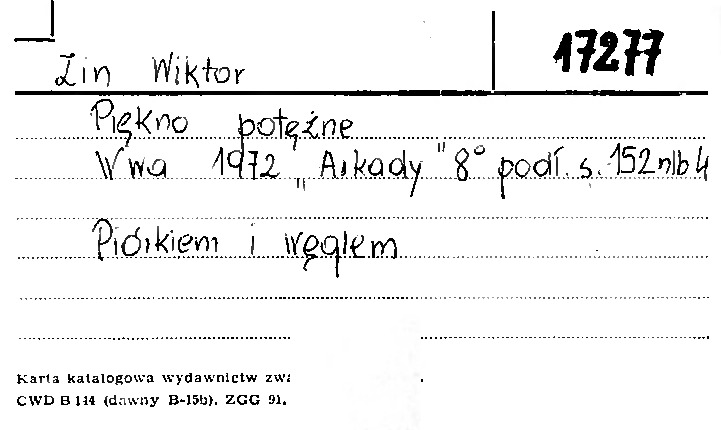 17277
Zin Wiktor
Piękno potężne
W-wa 1972 „Arkady" 8° podł. s. 152 nlb 4
Piórkiem i węglem
Karta katalogowa wydawnictw
CWD B 144 (dawny B-15b). ZGG 91.